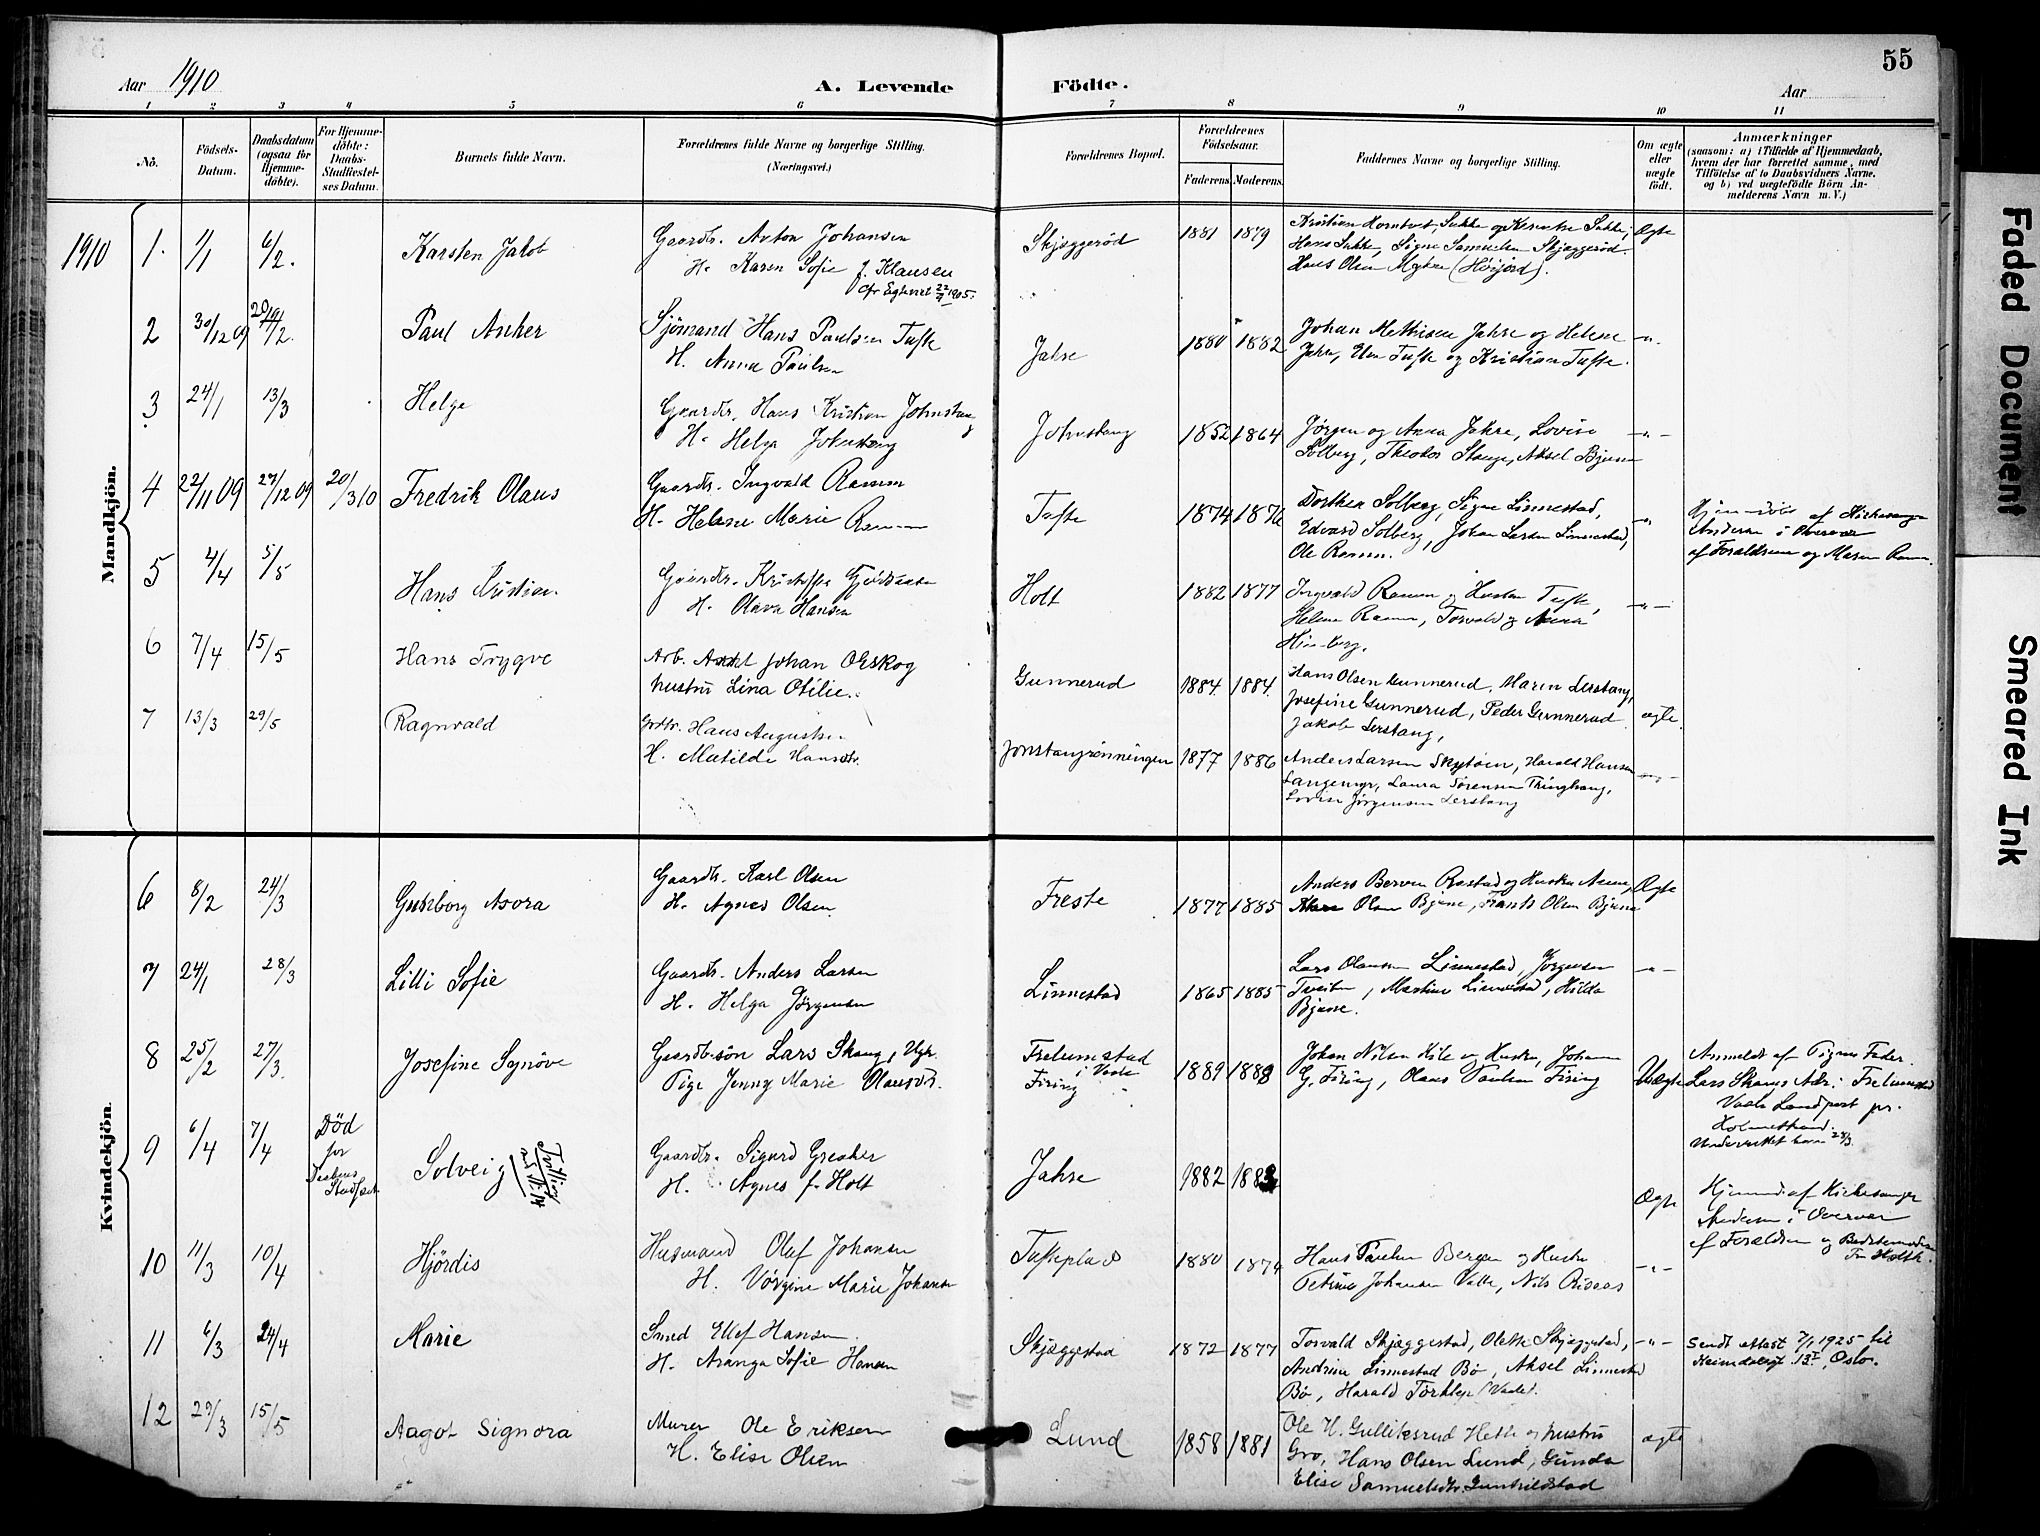 55
Aar 1910
A. Levende
Födte.
Aar
1 2 3 4 5 6 7 8 9 10 11
No.
Födsels-
Datum.
Daabsdatum
(ogsaa for
Hjemme-
döbte).
For Hjemme-
döbte:
Daabs-
Stadfæstel-
ses Datum.
Barnets fulde Navn.
Forældrenes fulde Navne og borgerlige Stilling.
(Næringsvei.)
Forældrenes Bopæl.
Forældrenes
Födselsaar.
Faderens. Moderens.
Faddernes Navne og borgerlige Stilling.
Om ægte
eller
uægte
födt.
Anmærkninger
(saasom: a) i Tilfælde af Hjemmedaab,
hvem der har forrettet samme, med
Tilföielse af to Daabsvidners Navne.
og b) ved uægtefödte Börn An-
melderens Navn m. V.)
Mandkjön.
1910
1. 1/1 6/2. Karsten Jakob
Gaardbr. Anton Johansen
H. Karen Sofie f. Klausen
Skjæggerød 1881 1879
Hans Sukke, Signe Samuelsen Skjæggerød.
Hans Olsen Myhre
Ægte
2 30/12 09 Paul Anker
Sjömand Hans Paulsen Tufte
H. Anna Paulsen
Jahre 1880 1882
Johan Mathisen Jahre og Helene
Jahre, Tufte og Kristian Tufte.
-"-
3 24/1 13/3 Helge
Gaardbr. Hans Kristian Johnstang
H. Helga Johnstang
Johnstang 1852 1864
Jørgen og Anna Jahre, Lovise
Solberg, Theodor Stange, Aksel Bjune
-"-
4 22/11 09 27/12 09 20/3 10 Fredrik Olaus
Gaardbr. Ingvald Ramm
H. Helene Marie Ramm
Tufte 1874 1876
Dorthea Solberg, Signe Linnestad,
Edvard Solberg, Johan Larsen Linnestad,
Ole Ramm.
-"-
af Kirkesanger
Andersen i
af Forældrene og Maren Ramm
5 4/4 5/5 Hans Kristian
Gaardbr.
H. Olava Hansen
Holt 1882 1877
Ingvald Ramm og Hustru Tufte,
Helene Ramm, Torvald og Anna
-"-
6 7/4 15/5 Hans Trygve
Arb. Johan Orskog
hustru Lina Otilie.
Gunnerud 1884 1884
Hans Olsen Gunnerud, Maren Lerstang,
Josefine Gunnerud, Peder Gunnerud
Jakob Lerstang,
ægte.
7 13/3 29/5 Ragnvald
Grdbr. Hans Augustsen
H. Matilde Hansdtr.
Jonstangrønningen 1877 1886
Anders Larsen Skytøen, Harald Hansen
Langemyr, Laura Sørensen Thinghaug,
Lovise Jørgensen Lerstang
-"-
Kvindekjön.
6 8/2 24/3 Gunborg Asora
Gaardbr. Karl Olsen
H. Agnes Olsen
Freste 1877 1885
Anders Berven Rostad og Hustru Anne,
Olsen Bjune, Frants Olsen Bjune
Ægte
7 24/1 28/3 Lilli Sofie
Gaardbr. Anders Larsen
H. Helga Jörgensen
Linnestad 1865 1885
Lars Olausen Linnestad, Jørgensen
Tveiten, Martine Linnestad, Hilda
Bjune.
-"-
8 25/2 27/3. Josefine Synöve
Gaardb.sön Lars Skaug, Ugk.
Pige Jenny Marie Olausdtr.
i Vaale
Firing 1889 1888
Johan Nilsen Kile og Hustru, Johanne
G. Firing, Olaus Paulsen Firing
Uægte
Anmeldt af Pigens Fader
Lars Skaugs Adr:
Vaale Landpost pr.
Holmestrand.
9 6/4 7/4 Död
før
Daabens
Stadfæst.
Solveig
Tvilling
Gaardbr. Sigurd Greaker
H. Agnes f. Holt
Jahre 1882
Ægte
Hjemmed. af Kirkesanger
Andersen i
af Forældrene og Bedstemoderen
Fru Holth.
10 11/3 10/4 Hjördis
Husmand Olaf Johansen
H. Vörgine Marie Johansen
Tufteplads 1880 1874
Hans Paulsen Bergan og Hustru
Petrine Johansen Valle, Nils
-"-
11 6/3 24/4 Marie
Smed Ellef Hansen.
H. Aranga Sofie Hansen
Skjæggestad 1872 1877
Torvald Skjæggestad, Olette Skjæggestad,
Andrine Linnestad Bø, Aksel Linnestad
Bø, Harald Torkleje (Vaale).
-"-
Sendt attest 7/1 1925 til
Heimdalsgt. 13 I, Oslo.
12 29/3 15/5 Aagot Signora
Murer Ole Eriksen
H. Elise Olsen
Lund 1858 1881
Ole H. Gulliksrud Hette og hustru
Gro, Hans Olsen Lund, Gunda
Elise Samuelsdtr. Gunhildstad
ægte
Faded Document
Smeared Ink